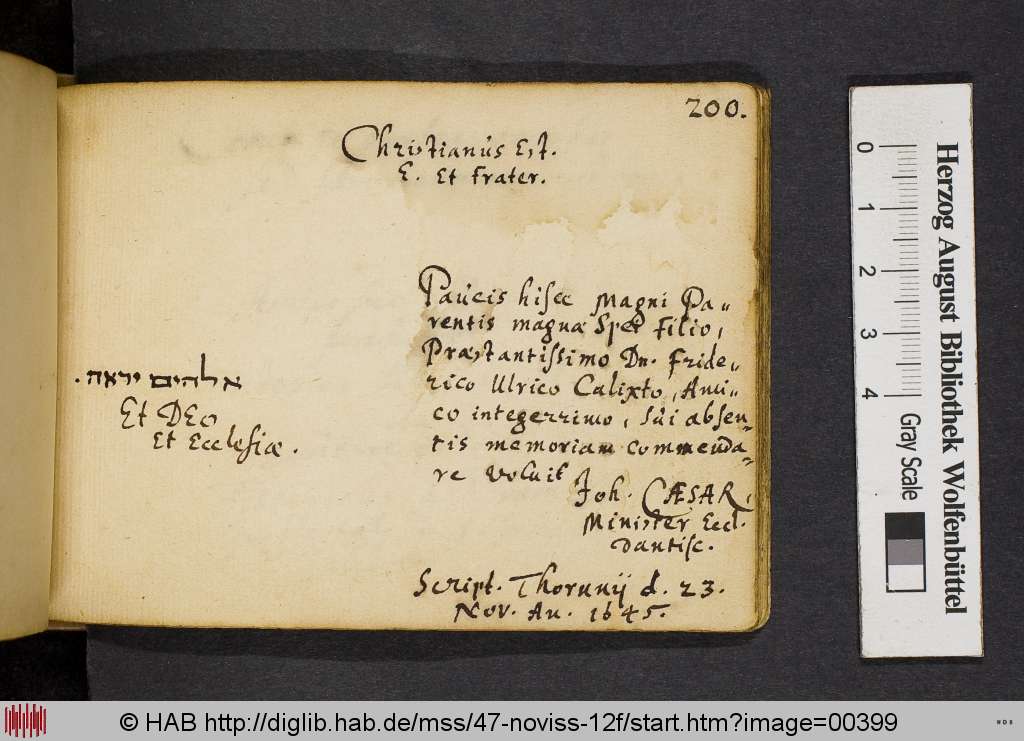 200.
Christianus Est.
E. Et Frater.
Paucis hisce Magni Pa„
rentis magnæ Spei Filio,
Præstantissimo Dn. Fride„
rico Ulrico Calixto, Ami„
co integerrimo, sui absen„
tis memoriam commenda„
re voluit
Joh. CÆSAR,
Minister Eccl.
Dantisc.
Script. Thorunij d. 23.
Nov. An. 1645.
אלהים יראה.
Et DEO
Et Ecclesiæ.
Herzog August Bibliothek Wolfenbüttel
0 1 2 3 4
Gray Scale
© HAB http://diglib.hab.de/mss/47-noviss-12f/start.htm?image=00399
WDB